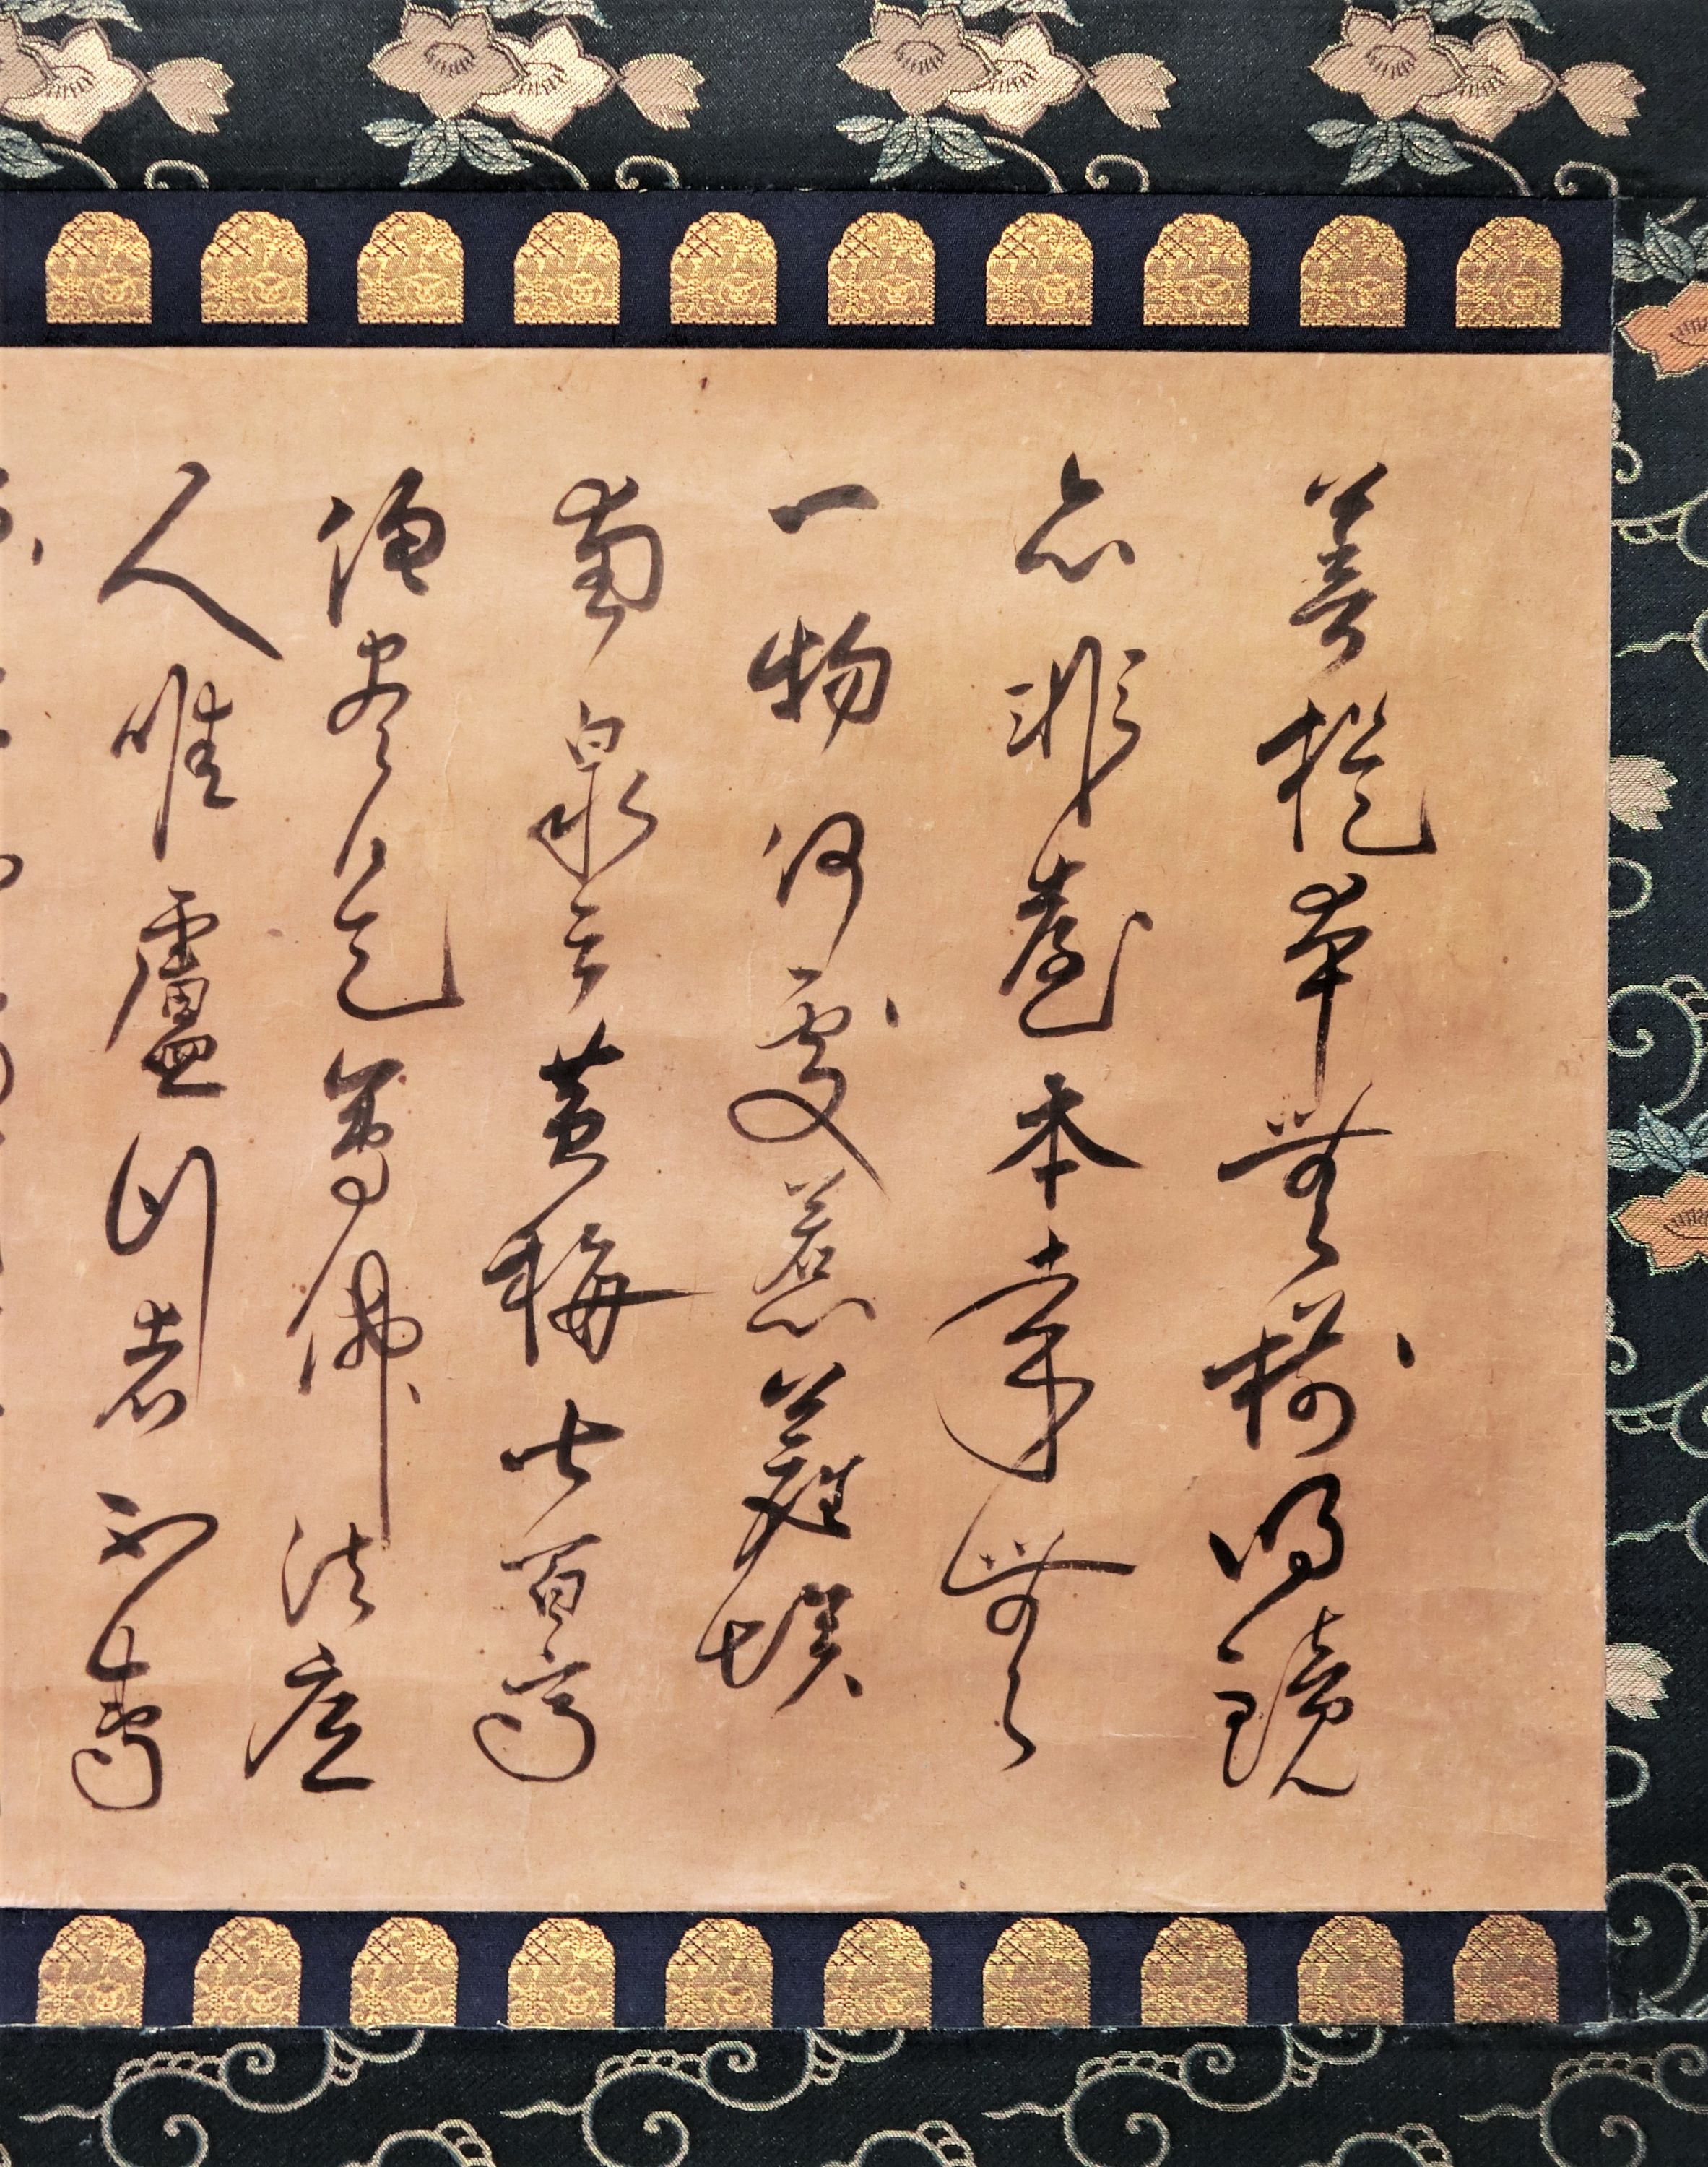 菩提本無樹明鏡
亦非臺本来無
一物何處惹塵埃
南泉云黄梅七百高
僧盡是會佛法底
人唯盧行者不會